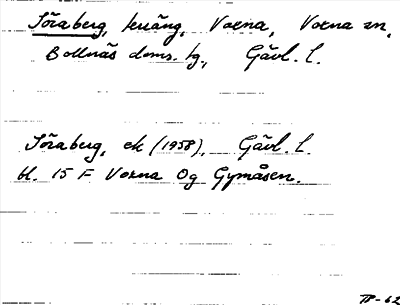 Söraberg, kräng, Voxna, Voxna sn,
Bollnäs doms. tg., Gävl. l.
Söraberg, ek (1958), Gävl. l.
bl. 15 F Voxna Og Gymåsen.
TP-62